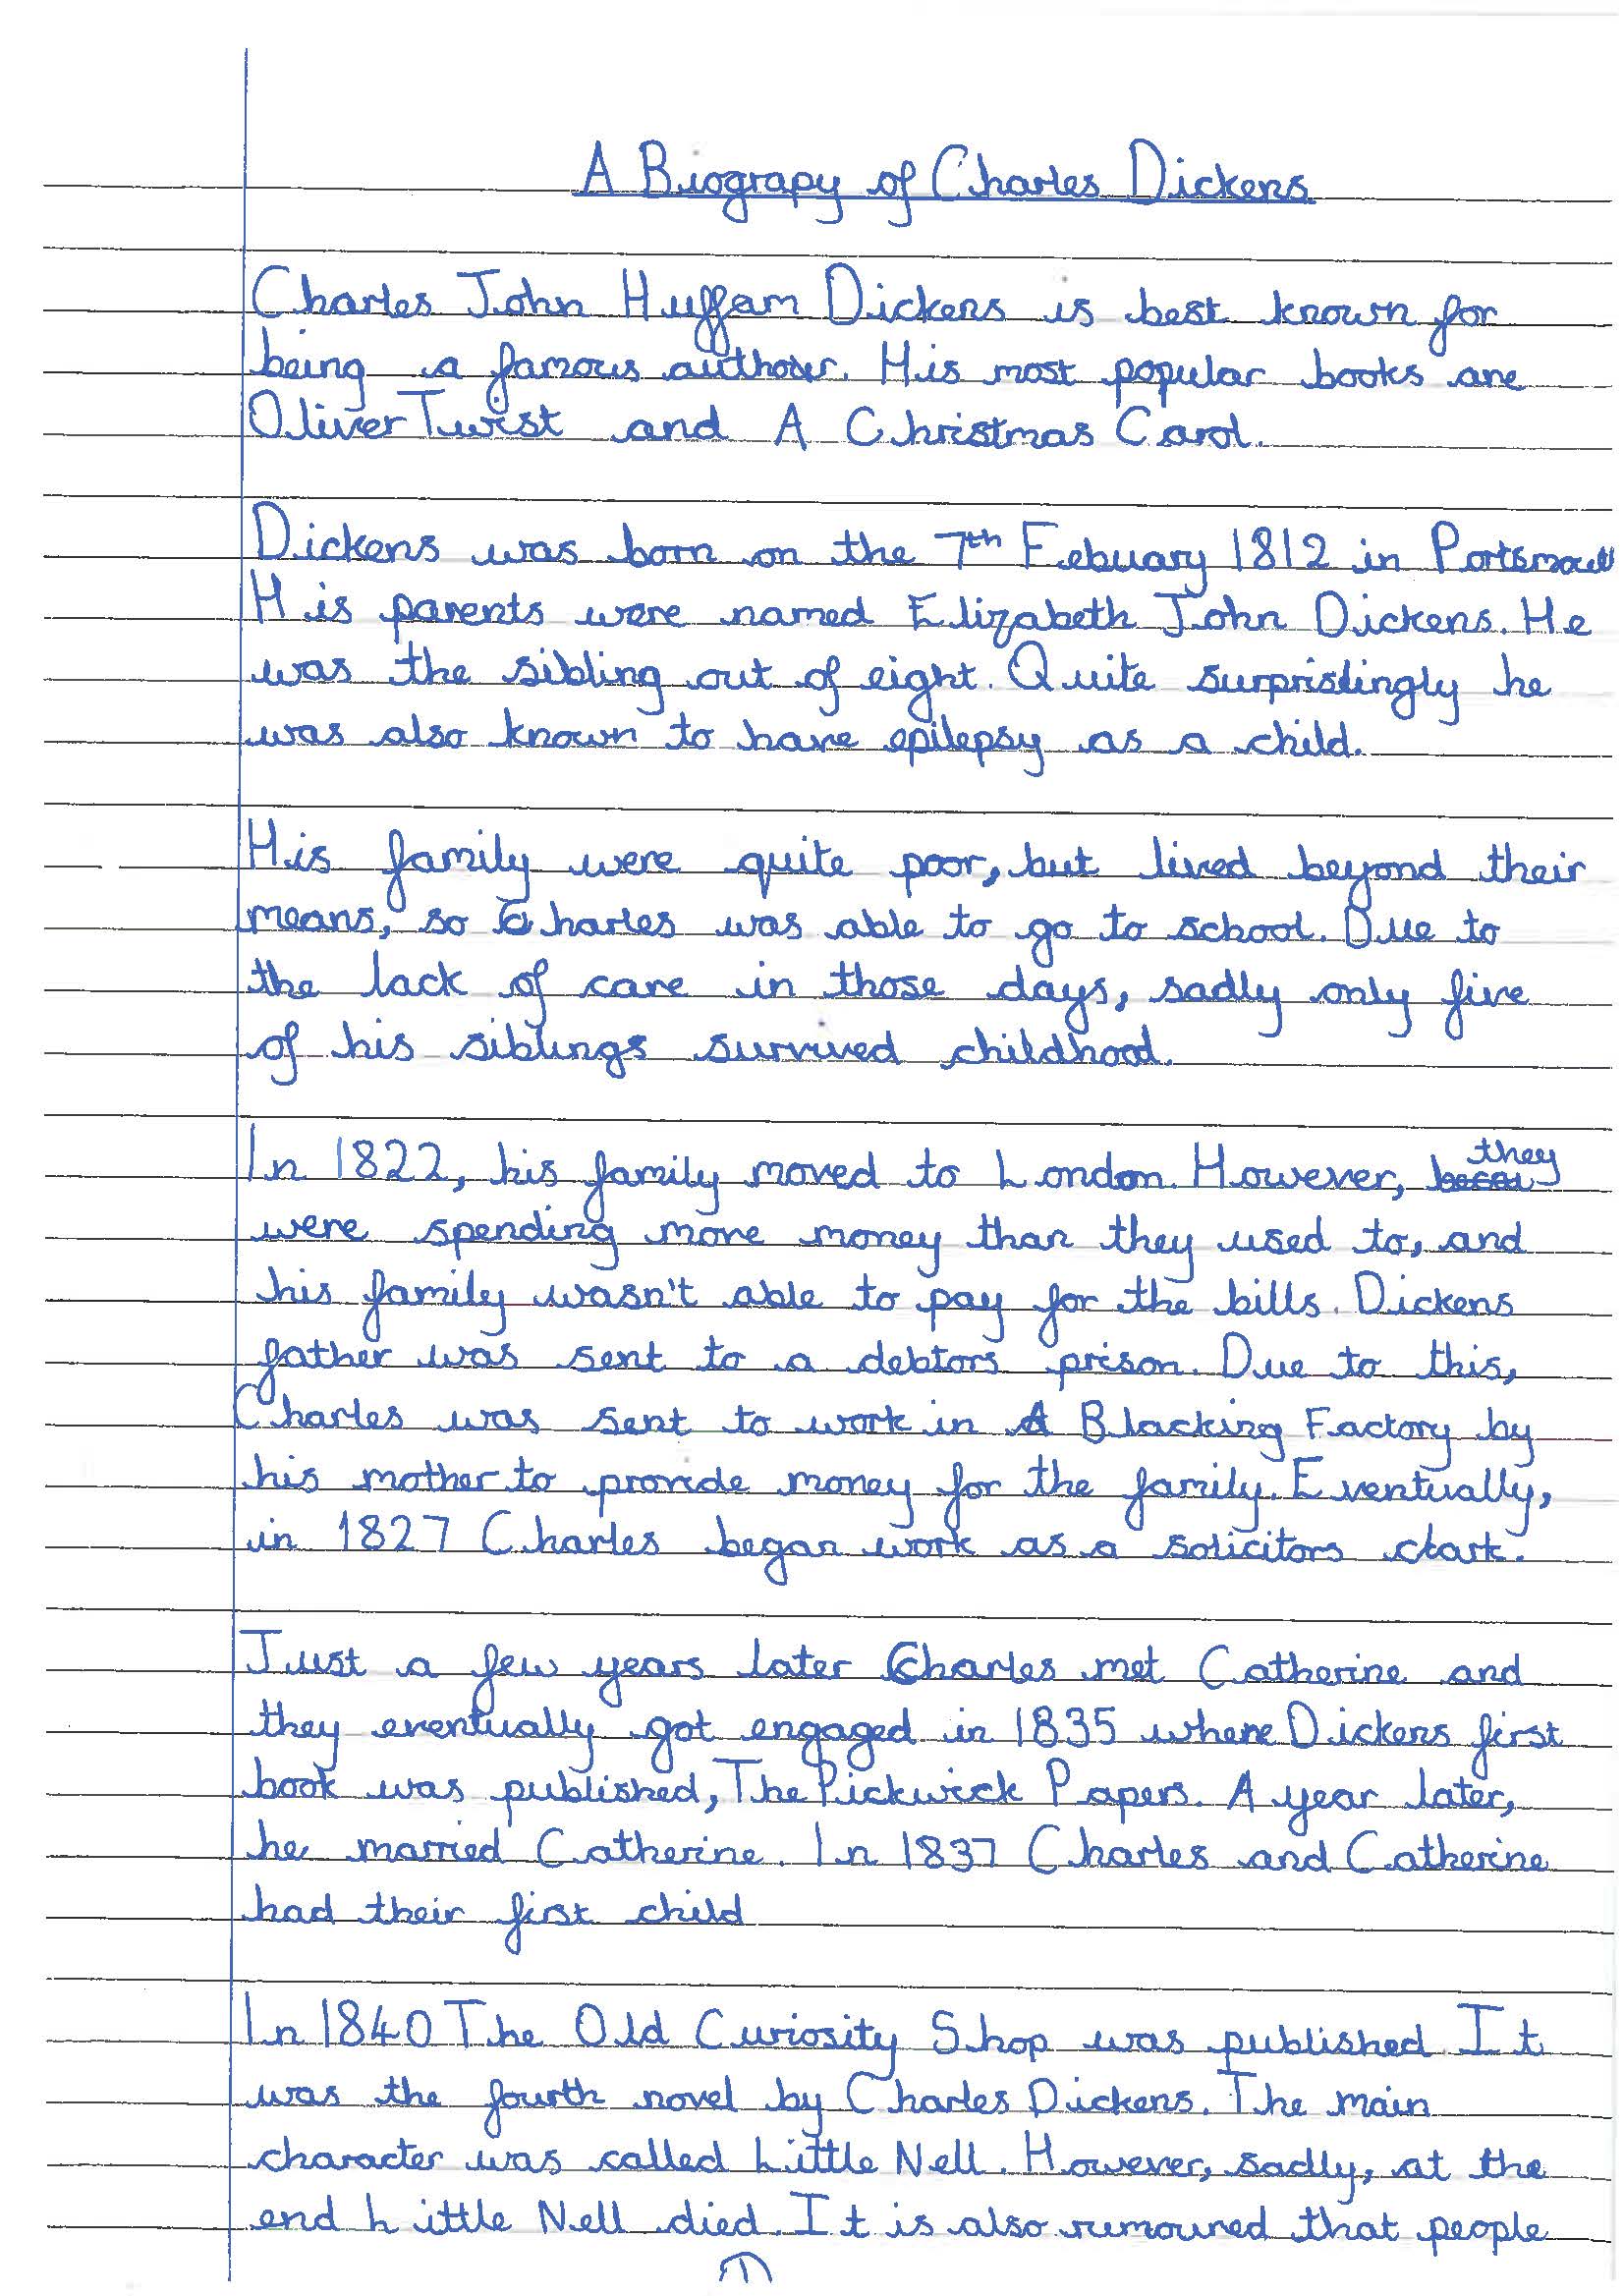 A Biograpy of Charles Dickens
Charles John Huffam Dickens is best known for
being a famous author. His most popular books are
Oliver Twist and A Christmas Carol.
Dickens was born on the 7th Febuary 1812 in Portsmouth
His parents were named Elizabeth John Dickens. He
was the sibling out of eight. Quite surprisingly he
was also known to have epilepsy as a child.
His family were quite poor, but lived beyond their
means, so Charles was able to go to school. Due to
the lack of care in those days, sadly only five
of his siblings survived childhood.
In 1822, his family moved to London. However, they
were spending more money than they used to, and
his family wasn't able to pay for the bills. Dickens
father was sent to a debtors prison. Due to this,
Charles was sent to work in A Blacking Factory by
his mother to provide money for the family. Eventually,
in 1827 Charles began work as a solicitors clark.
Just a few years later Charles met Catherine and
they eventually got engaged in 1835 where Dickens first
book was published, The Pickwick Papers. A year later,
he married Catherine. In 1837 Charles and Catherine
had their first child
In 1840 The Old Curiosity Shop was published. It
was the fourth novel by Charles Dickens. The main
character was called Little Nell. However, sadly, at the
end Little Nell died. It is also rumoured that people